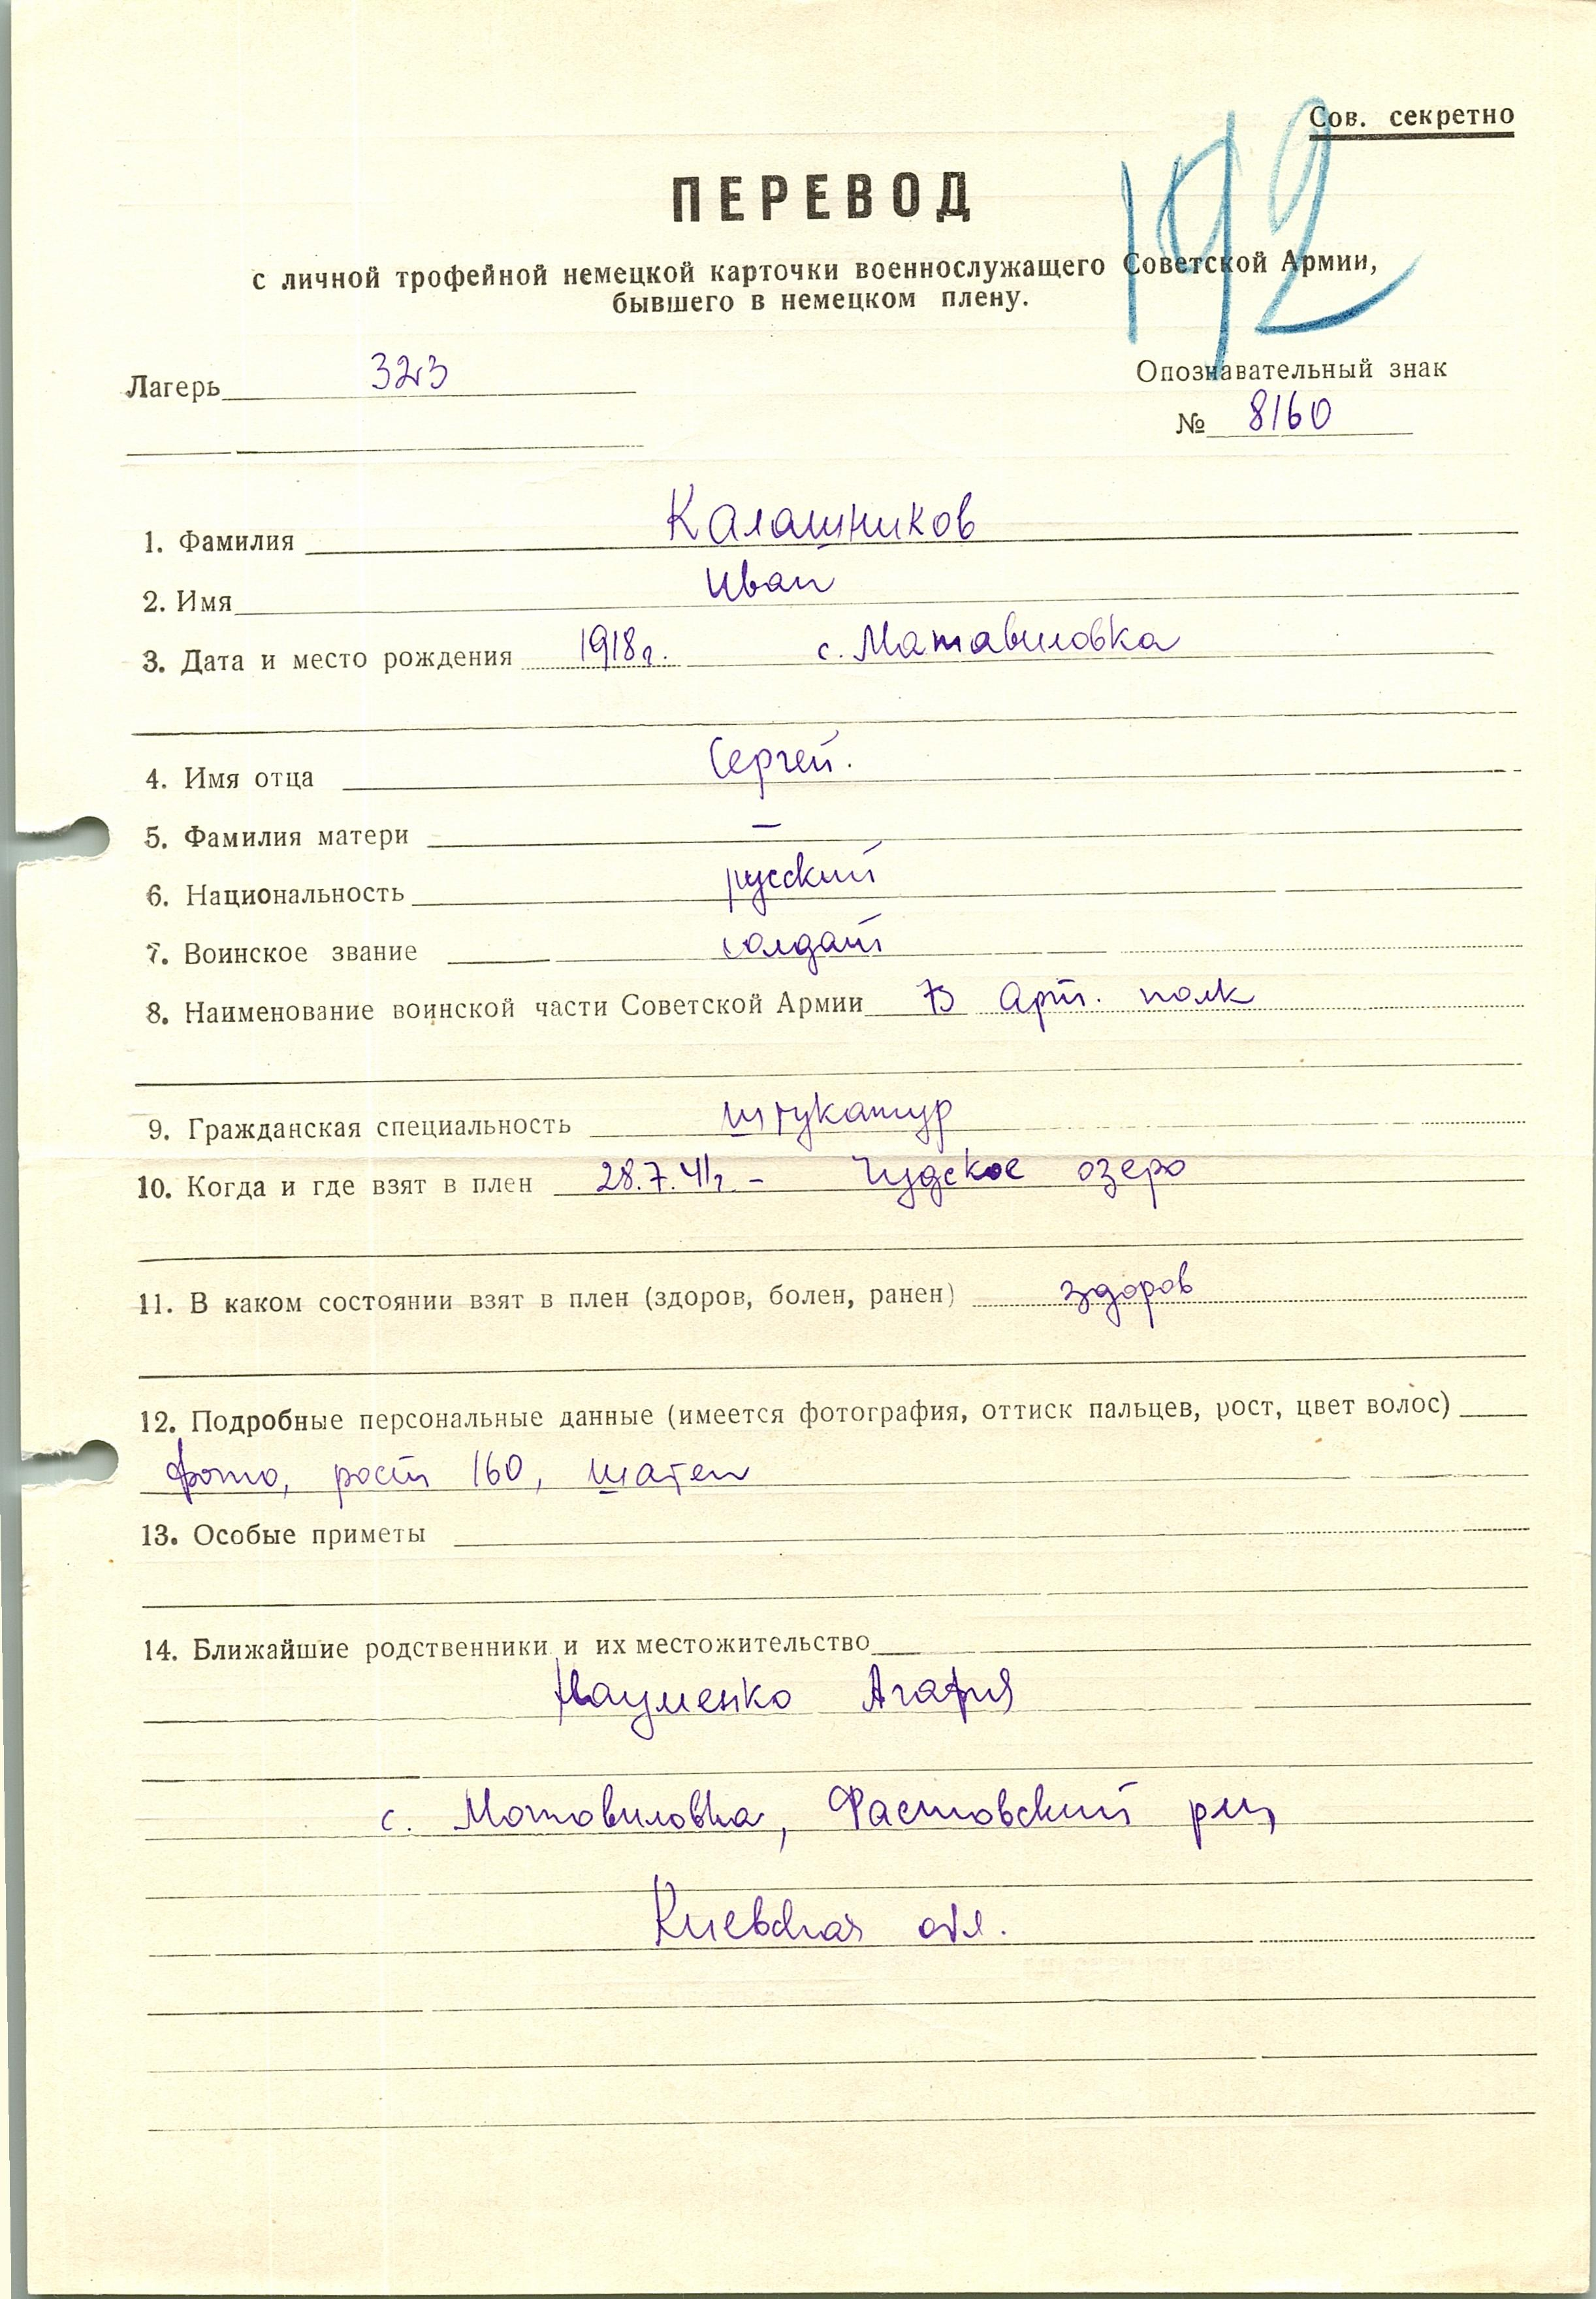 Сов. секретно
192
ПЕРЕВОД
с личной трофейной немецкой карточки военнослужащего Советской Армии,
бывшего в немецком плену.
Лагерь 323
Опознавательный знак
№ 8160
1. Фамилия Калашников
2. Имя Иван
3. Дата и место рождения 1918г. с. Матавиловка
4. Имя отца Сергей.
5. Фамилия матери –
6. Национальность русский
7. Воинское звание солдат
8. Наименование воинской части Советской Армии 73 Арт. полк
9. Гражданская специальность штукатур
10. Когда и где взят в плен 28.7.41г. – Чудское озеро
11. В каком состоянии взят в плен (здоров, болен, ранен) здоров
12. Подробные персональные данные (имеется фотография, оттиск пальцев, рост, цвет волос)
фото, рост 160, шатен
13. Особые приметы
14. Ближайшие родственники и их местожительство
Науменко Агафия
с. Мотовиловка, Фастовский р-н,
Киевская обл.